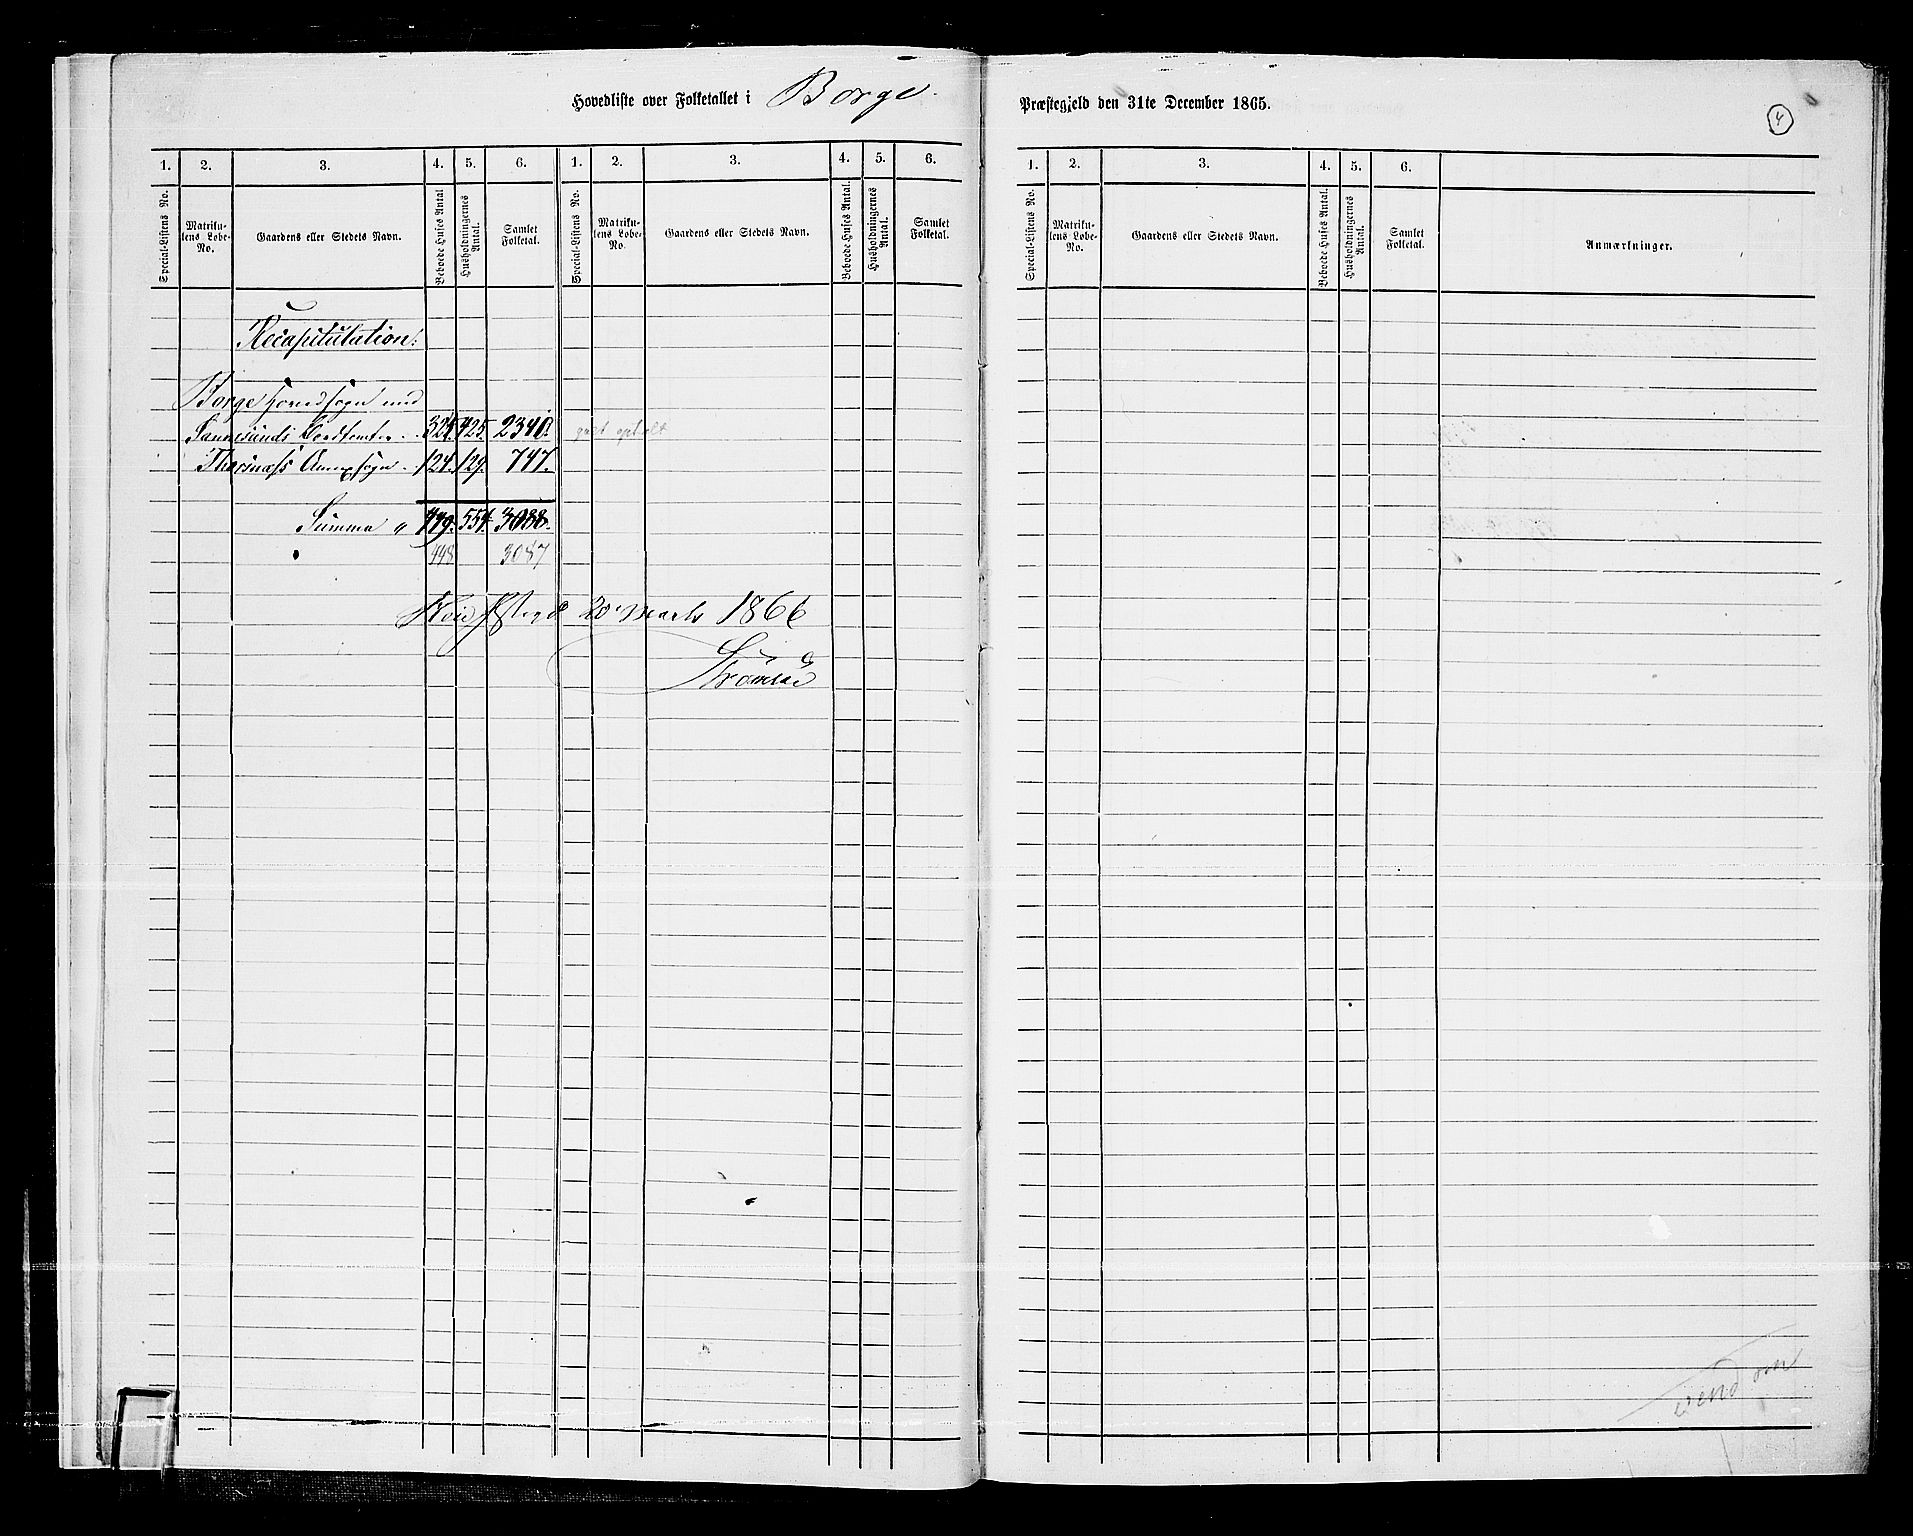 Hovedliste over Folketallet i Borge. Præstegjeld den 31te December 1865.
4
1. 2. 3. 4. 5. 6. 1. 2. 3. 4. 5. 6. 1. 2. 3. 4. 5. 6.
Special-Listens No. Matrikulens Løbe-No. Gaardens eller Stedets Navn. Beboede Huses Antal Husholdningernes Antal. Samlet Folketal. Special-Listens No. Matrikulens Løbe-No. Gaardens eller Stedets Navn. Beboede Huses Antal. Husholdningernes Antal. Samlet Folketal. Special-Listens No. Matrikulens Løbe-No. Gaardens eller Stedets Navn. Beboede Huses Antal. Husholdningernes Antal. Samlet Folketal. Anmærkninger.
Recapitulation:
Borge Hovedsogn med
Sannesunds 324. 425. 2340.
Thorsnæss Annexsogn 124. 129. 747.
Summa " 449. 554. 3088.
448 3087
20 Marts 1866
vend om